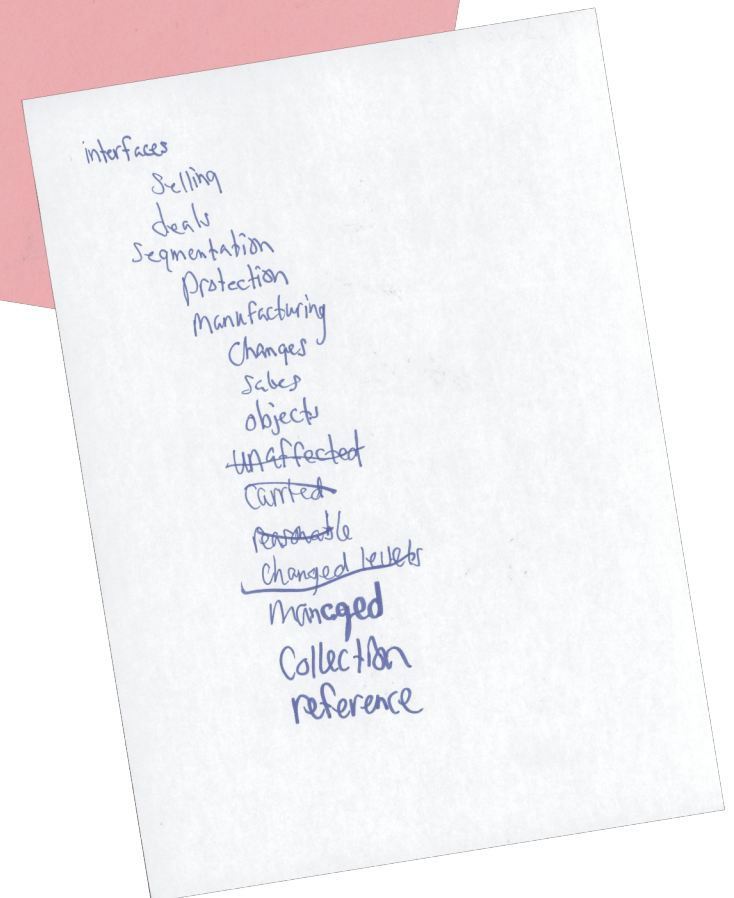 interfaces
Selling
deals
Segmentation
Protection
Manufacturing
Changes
Sales
objects
unaffected
Carried
reasonable
Changed levels
managed
Collection
reference